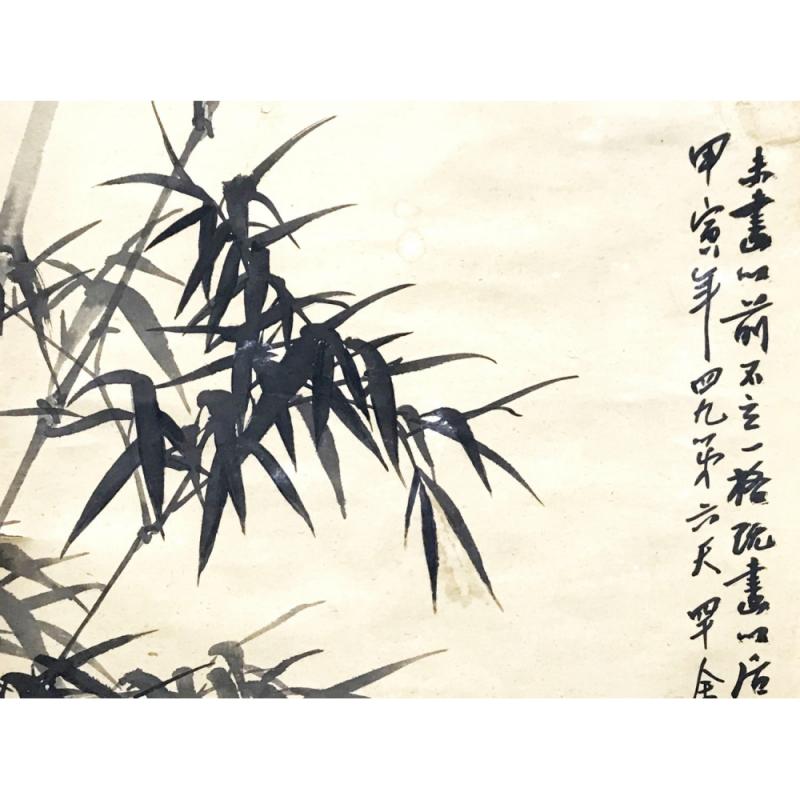 未畫以前不立一格既畫以后
甲寅年四九第六天